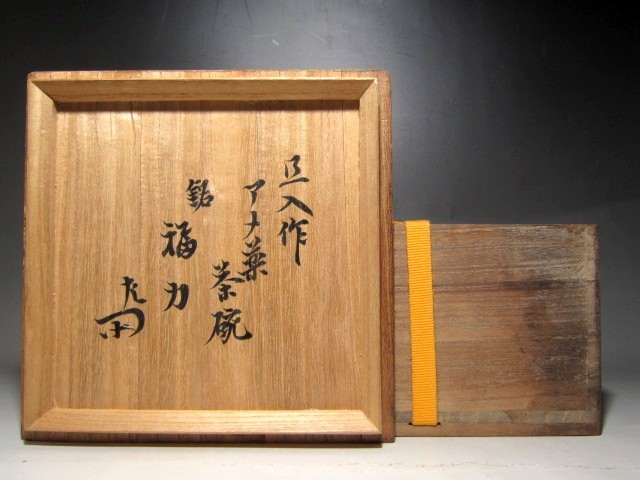 旦入作
アメ薬茶碗
銘 福力